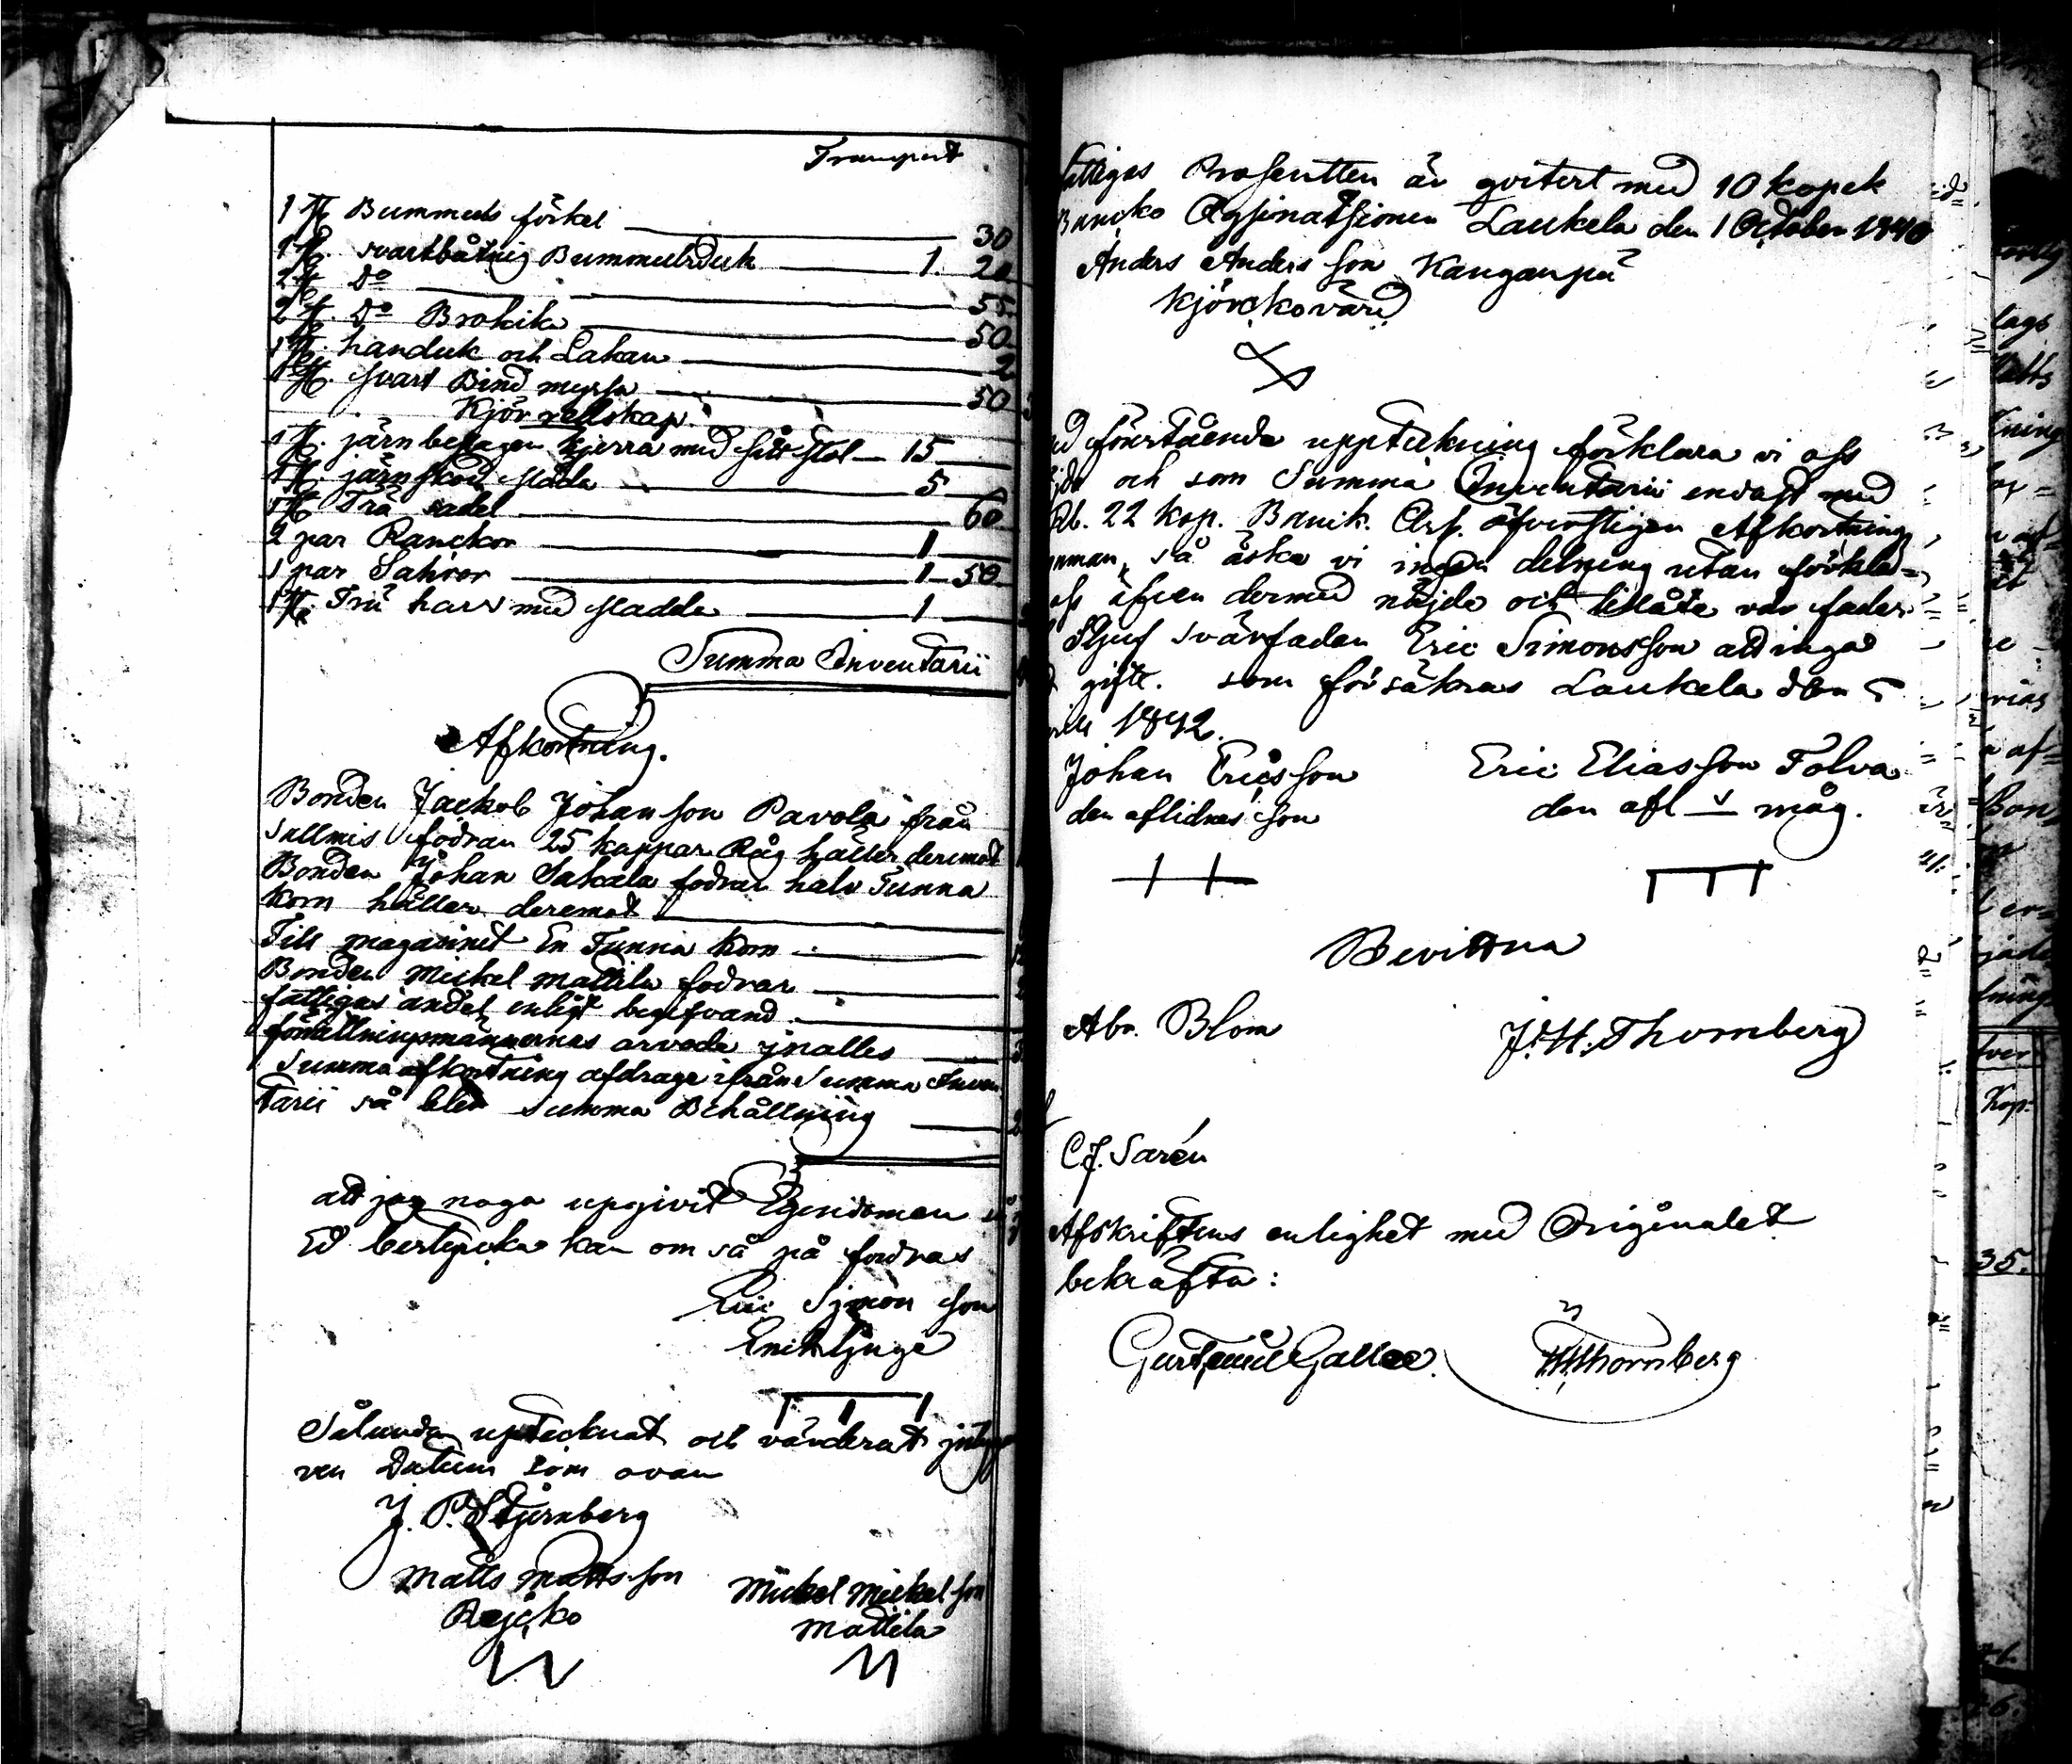 Transport
1 st. Bummuls förkel 30
1 st. svartbåtnig Bummulsduk 1 20
2 st. Do 55
2 st. Do Brokika 50
1 st. handuk och Lakan 2
1 st. svart Bind myssa 50
Kjör redskap.
1 st. järn beslagen kjerra med sitt stol 15
1 st. järnskod släda 5
1 st. Trä sadel 60
2 par Ranckor 1
1 par Sahror 1 50
1 st. Trä harv med sladda 1
Summa Inventarii
Afkortning.
Bonden Jackob Johansson Pavola från
Sullmis fodran 25 kappar Råg håller deremot
Bonden Johan Sakala fodrar halv Tunna
korn håller deremot
Till magasinet En Tunna korn
Bonden Mickel Mattila fodrar
fattigas andel enligt
arvode inalles
Summa afkortning afdrages ifrån Summa Inven
tarii så blev Summa Behållning
att jag noga upgivit Egendomen
Ed bertycka kan om så på fodras
Eric Simon son
Enckling
Sålunda uptecknat och värderat
ven Datum som ovan
J. P. Stjernberg
Matts Mattsson
Rejcko
Mickel Mickelson
Mattila
attigas Prosentten är qvitert med 10 kopek
Bancko Assinatsionen Laukela den 1 October 1840
Anders Andersson Kanganpä
kjörckovärd
förestående uppteckning förklara vi oss
och som Summa Inventarii endast med
Rb. 22 kop. Banck. Ass. öfverstiger Afkortning
så äska vi ingen delning utan förkla=
oss äfven dermed nöjda och tillåta vår fader
Stjuf svärfadren Eric Simonsson att ingå
gifte. som försäkras Laukela den 5
1842.
Johan Ericsson
den aflidnes son
Eric Eliasson Tolva
den afl — s måg.
Bevittna
Abr. Blom
J. H. Thornberg
C. J. Sarén
Afskriftens enlighet med Originalet
bekräfta:
Thornberg